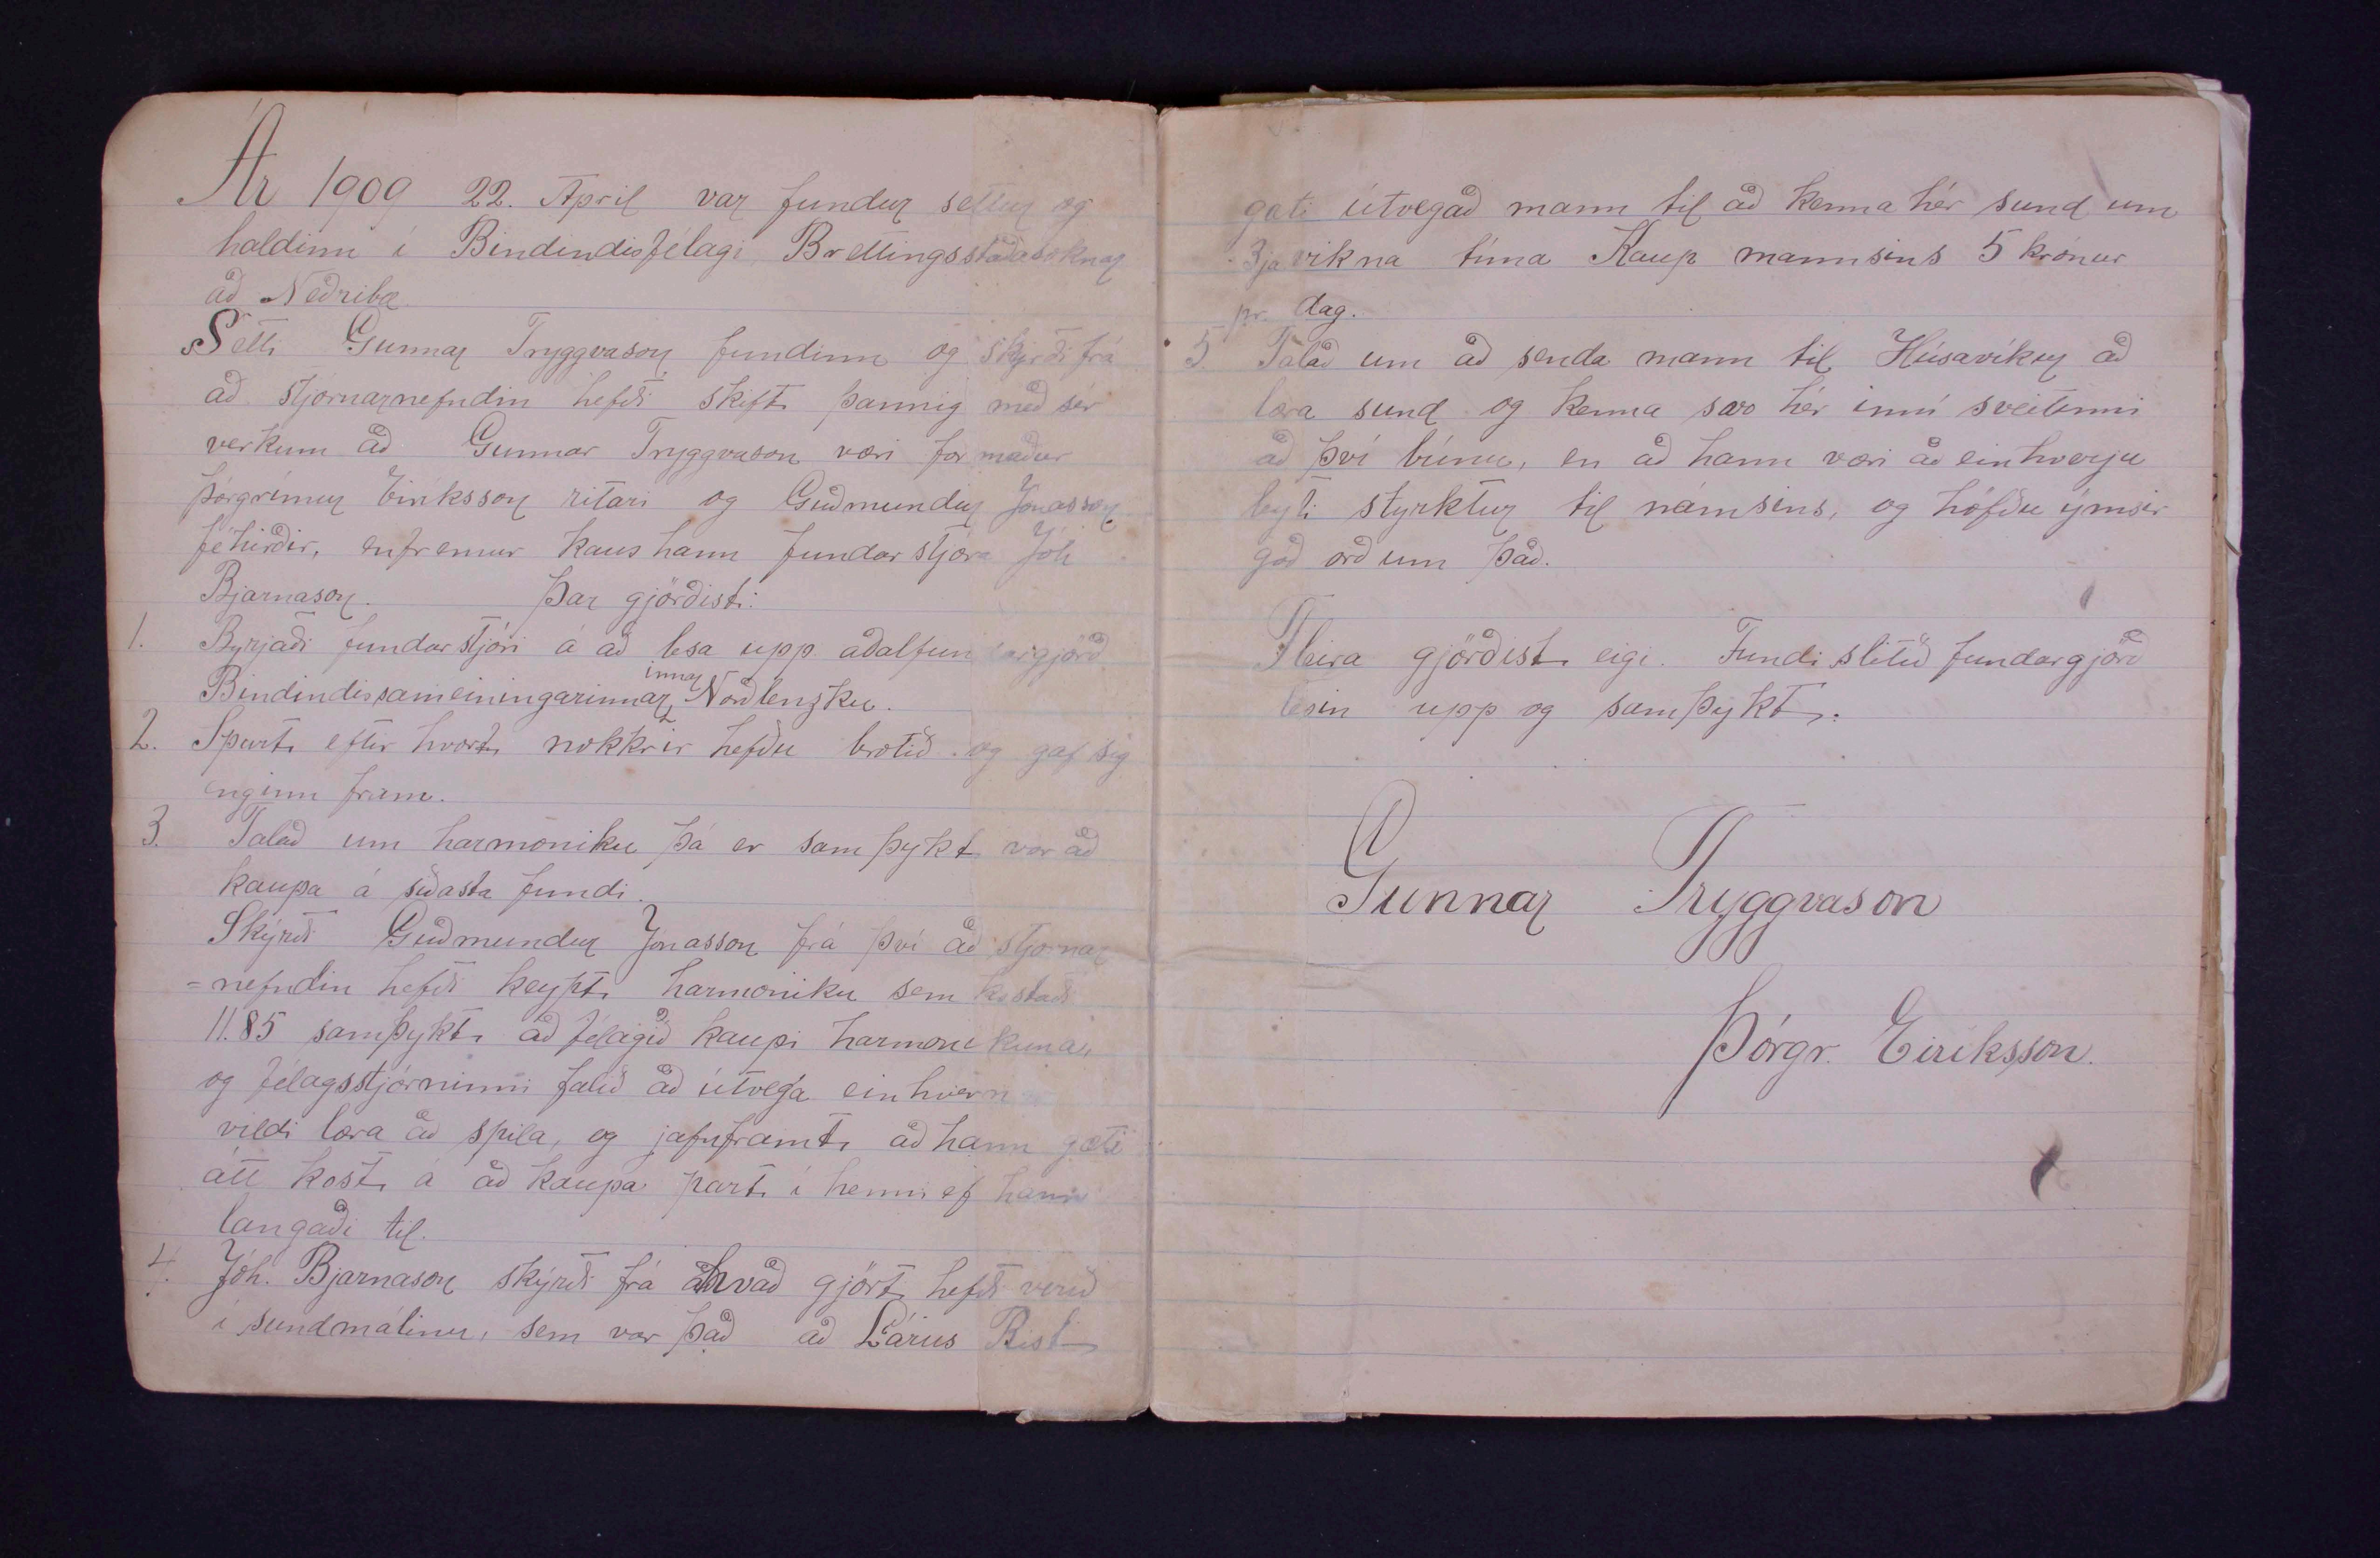 Ár 1909 22. Apríl var fundur settur og
haldinn í Bindindisfélagi Brettingsstaðasóknar
að Neðribæ
Setti Gunnar Tryggvason fundinn og skýrði frá
að stjórnarnefndin hefði skift þannig með sér
verkum að Gunnar Tryggvason væri formaður
Þórgrímur Eiríksson ritari og Guðmundur Jónasson
féhirðir, enfremur kaus hann fundarstjóra Jóh
Bjarnason. Þar gjörðist:
1. Byrjaði fundarstjóri á að lesa upp aðalfundargjörð
Bindindissameiningarinnar innar Norðlenzku.
2. Spurt eftir hvort nokkrir hefðu brotið og gaf sig
enginn fram.
3. Talað um harmoniku þá er samþykt var að
kaupa á síðasta fundi.
Skýrði Guðmundur Jónasson frá því að stjórnar
=nefndin hefði keypt harmoniku sem kostaði
11.85 samþykt að félagið kaupi harmonikuna,
og félagsstjórninni falið að útvega einhvern
vildi læra að spila, og jafnframt að hann gæti
átt kost á að kaupa part í henni ef hann
langaði til.
4. Jóh. Bjarnason skýrði frá hvað gjört hefði verið
í sundmálinu, sem var það að Lárus Rist
gæti útvegað mann til að kenna hér sund um
3ja vikna tíma Kaup mannsins 5 krónur
pr. dag.
5. Talað um að senda mann til Húsavíkur að
læra sund og kenna svo hér inní sveitinni
að því búnu, en að hann væri að einhverju
leyti styrktur til námsins, og höfðu ýmsir
góð orð um það.
Fleira gjörðist eigi. Fundi slitið fundargjörð
lesin upp og samþykt.
Gunnar Tryggvason
Þórgr. Eiríksson.